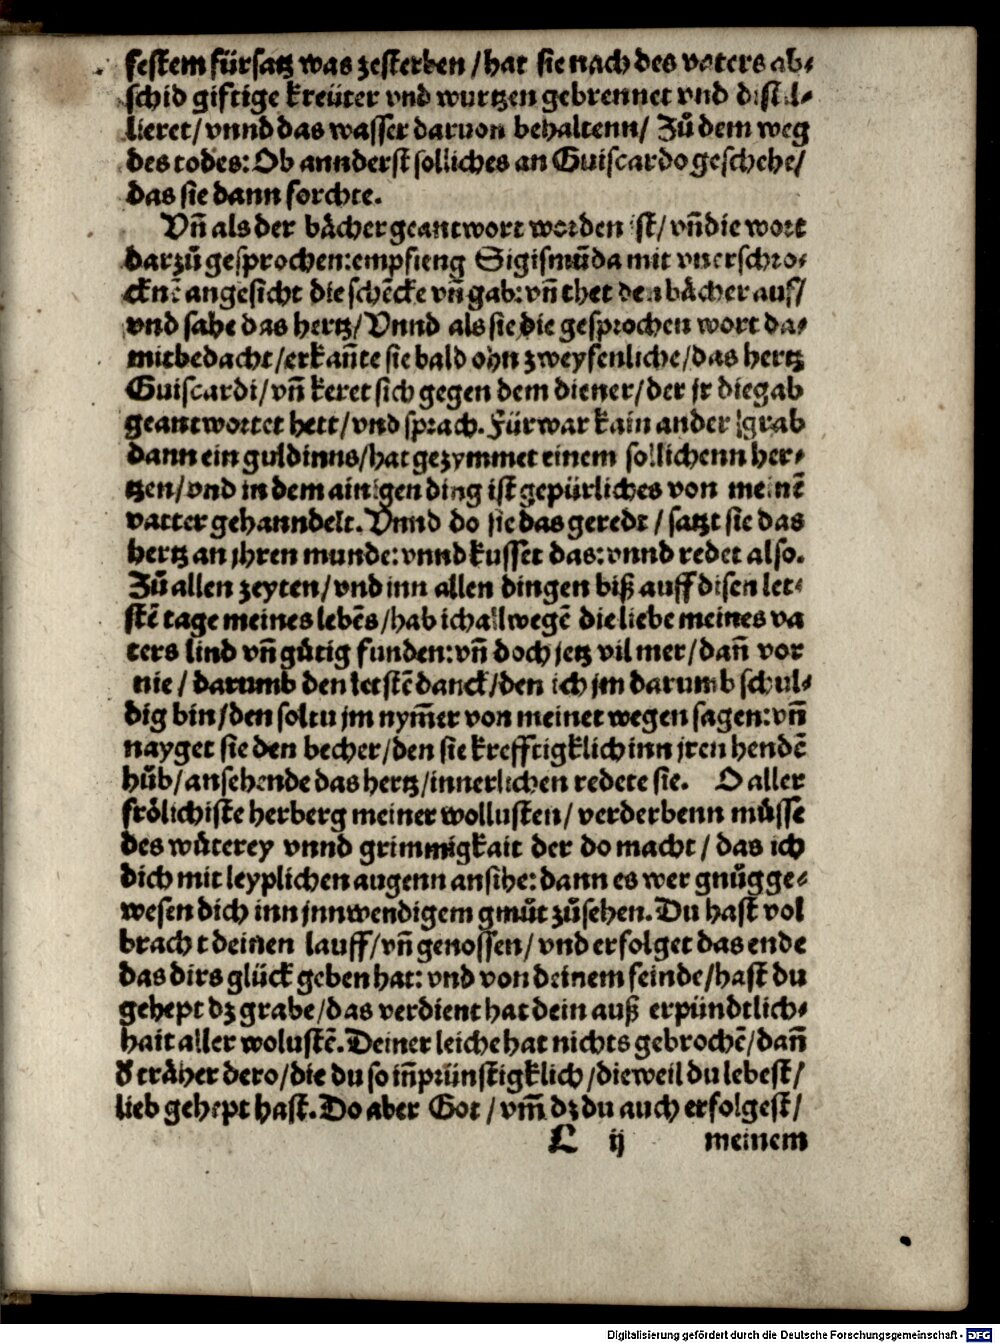 festem fürsatz was zesterben / hat sie nach des vaters ab⸗
schid giftige kreüter vnd wurtzen gebrennet vnd distil⸗
lieret / vnnd das wasser daruon behaltenn / Zů dem weg
des todes: Ob annderst solliches an Guiscardo geschehe /
das sie dann forchte.
Vñ als der bächer geantwort worden ist / vñ die wort
darzů gesprochen: empfieng Sigismūda mit vnerschro⸗
cknē angesicht die schēcke vñ gab: vñ thet den bächer auf /
vnd sahe das hertz / Vnnd als sie die gesprochen wort da⸗
mit bedacht / erkañte sie bald ohn zweyfenliche / das hertz
Guiscardi / vñ keret sich gegen dem diener / der jr die gab
geantwortet hett / vnd sprach. Fürwar kain ander grab
dann ein guldinns / hat gezymmet einem sollichenn her⸗
tzen / vnd in dem ainigen ding ist gepürliches von meinē
vatter gehanndelt. Vnnd do sie das geredt / satzt sie das
hertz an jhren munde: vnnd kusset das: vnnd redet also.
Zů allen zeyten / vnd inn allen dingen biß auff disen let⸗
stē tage meines lebēs / hab ich allwegē die liebe meines va
ters lind vñ gůtig funden: vñ doch jetz vil mer / dañ vor
nie / darumb den letstē danck / den ich jm darumb schul⸗
dig bin / den soltu jm nym̃er von meinet wegen sagen: vñ
nayget sie den becher / den sie krefftigklich inn jren hendē
hůb / ansehende das hertz / innerlichen redete sie. O aller
frölichiste herberg meiner wollusten / verderbenn můsse
des wůterey vnnd grimmigkait der do macht / das ich
dich mit leyplichen augenn ansihe: dann es wer gnůg ge⸗
wesen dich inn jnnwendigem gmůt zůsehen. Du hast vol
bracht deinen lauff / vñ genossen / vnd erfolget das ende
das dirs glück geben hat: vnd von deinem feinde / hast du
gehept dz grabe / das verdient hat dein auß erpündtlich⸗
hait aller wolustē. Deiner leiche hat nichts gebrochē / dañ
d̕ träher dero / die du so iñprünstigklich / dieweil du lebest /
lieb gehept hast. Do aber Got / vm̃ dz du auch erfolgest /
L ij meinem
Digitalisierung gefördert durch die Deutsche Forschungsgemeinschaft - DFG